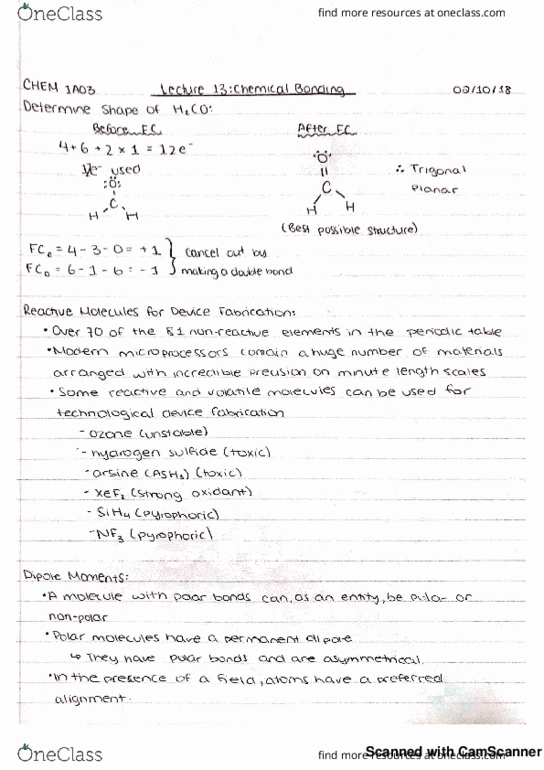 OneClass
find more resources at oneclass.com
CHEM 1A03 Lecture 13: Chemical Bonding 02/10/18
Determine Shape of H₂CO:
Before FC After FC
4 + 6 + 2 x 1 = 12e⁻
12e⁻ used
:Ö:
C
H H
Ö
||
C
H H
∴ Trigonal
Planar
(Best possible structure)
FCc = 4 - 3 - 0 = +1 } cancel out by
FCo = 6 - 1 - 6 = -1 } making a double bond
Reactive Molecules for Device Fabrication:
• Over 70 of the 81 non-reactive elements in the periodic table
• Modern microprocessors contain a huge number of materials
arranged with incredible precision on minute length scales
• Some reactive and volatile molecules can be used for
technological device fabrication
- ozone (unstable)
- hydrogen sulfide (toxic)
- arsine (AsH₃) (toxic)
- XeF₂ (strong oxidant)
- SiH4 (pyrophoric)
- NF3 (pyrophoric)
Dipole Moments:
• A molecule with polar bonds can, as an entity, be polar or
non-polar
• Polar molecules have a permanent dipole
↳ They have polar bonds and are asymmetrical.
• In the presence of a field, atoms have a preferred
alignment.
OneClass
find more resources at oneclass.com
Scanned with CamScanner